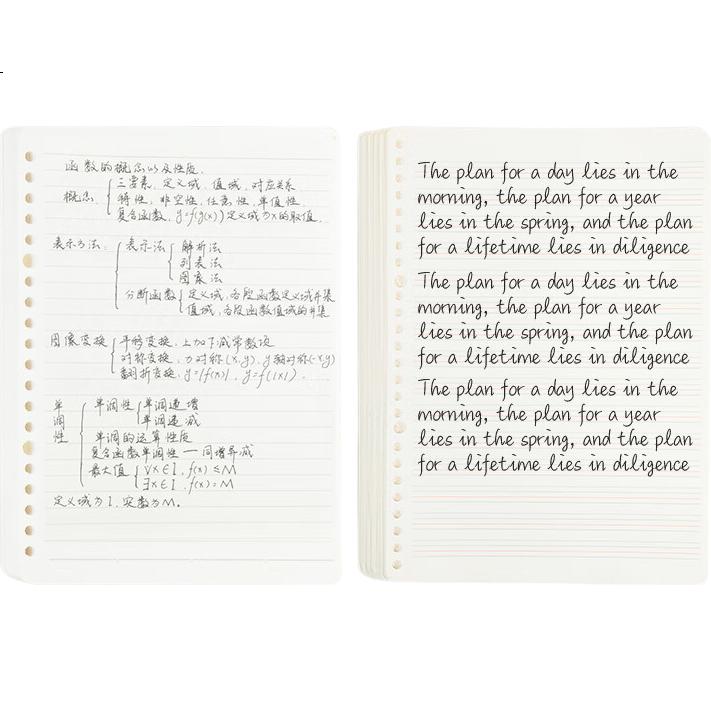 函数的概念以及性质.
概念
三要素, 定义域, 值域, 对应关系
特性, 非空性, 任意性, 单值性
复合函数, y=f(g(x))定义域为x的取值.
表示方法:
表示法
解析法
列表法
图象法
分断函数
定义域, 各段函数定义域并集
值域, 各段函数值域的并集
图像变换
平移变换, 上加下减常数项
对称变换, 对称(x,-y), y轴对称(-x,y)
翻折变换, y=|f(x)|, y=f(|x|). ......
单调性
单调性
单调递增
单调递减
单调的运算性质
复合函数单调性 — 同增异减
最大值
∀x∈I, f(x)≤M
∃x∈I, f(x)=M
定义域为I, 实数为M.
The plan for a day lies in the
morning, the plan for a year
lies in the spring, and the plan
for a lifetime lies in diligence
The plan for a day lies in the
morning, the plan for a year
lies in the spring, and the plan
for a lifetime lies in diligence
The plan for a day lies in the
morning, the plan for a year
lies in the spring, and the plan
for a lifetime lies in diligence